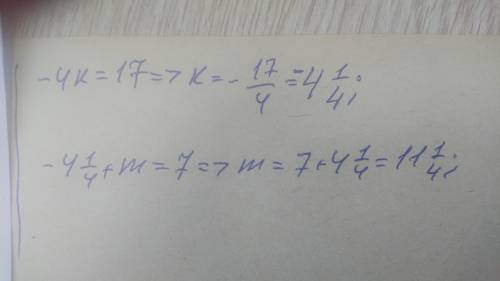 -4k = 17 => k = - 17/4 = -4 1/4;
-4 1/4 + m = 7 => m = 7 + 4 1/4 = 11 1/4;